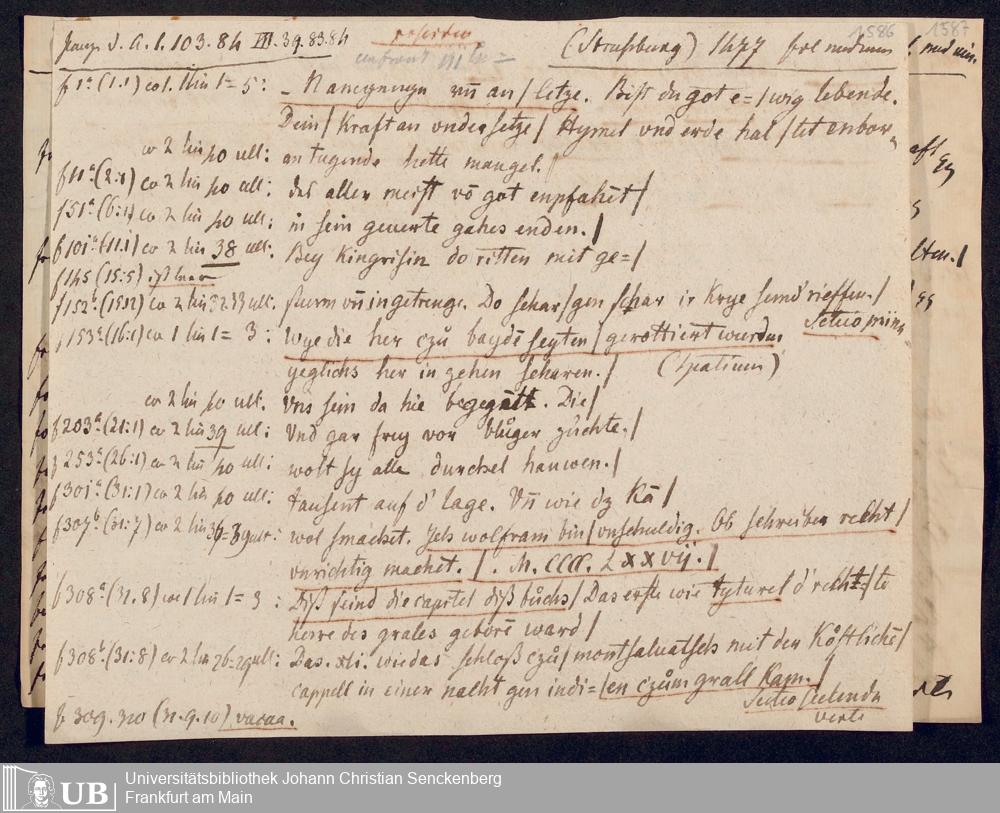 1586 1587
S. A. l. 103. 84 III. 39. 83. 84 (Straßburg) 1477 fol
f 1a (1.1) col. 1 lin 1 = 5: an / letze. Bist du got e= / wig lebende.
Dein / Kraft an vnder setze / Hymel vnd erde hal / tet enbor
co 2 lin po ult: an tugende hette mangel. /
f 11a (2:1) co 2 lin po ult: das aller meist vō got enpfahēt /
f 51a (6:1) co 2 lin po ult: in sein geuerte gahes enden. /
f 101a (11.1) co 2 lin 38 ult. Bey Kingrisin do ritten mit ge= /
f 145 (15:5)
f 152b (15 12) co 2 lin 32 33 ult. sturm vn̄ in getrenge. Do schar / gen schar ir Krye rieffen. /
f 153a (16:1) co 1 lin 1 = 3: Wye die her czů baydē seyten / gerottiert wurdn.
yeglichs her in zehen scharen. / (Spatium)
co 2 lin po ult. Vns sein da hie begegātt. Die /
f 203a (21:1) co 2 lin 39 ult: Vnd gar frey vor zůchte. /
f 253a (26:1) co 2 lin po ult: wolt sy alle durchel hauwen. /
f 301a (31:1) co 2 lin po ult: tausent auf d' lage. Vn̄ wie dz Kā /
f 307b (31:7) co 2 lin wol smachet. Jch wolfram bin / vnschuldig. Ob schreiber recht /
vnrichtig machet. / . M. CCCC. LXXVij. /
f 308a (31.8) co 1 lin 1 = 3: Diß seind die capitel diß bůchs / Das erste wie tyturel d' recht / te
herre des grales geborē ward /
f 308b (31:8) co 2 lin 26 = 29 ult: Das. xli. wie das schloß czů / montsaluatsch mit der Kőstlichē /
cappell in einer nacht gen indi= / en czům grall Kam. /
f 309. 310 (31. 9. 10) vacaa.
verte
Universitätsbibliothek Johann Christian Senckenberg
Frankfurt am Main
UB